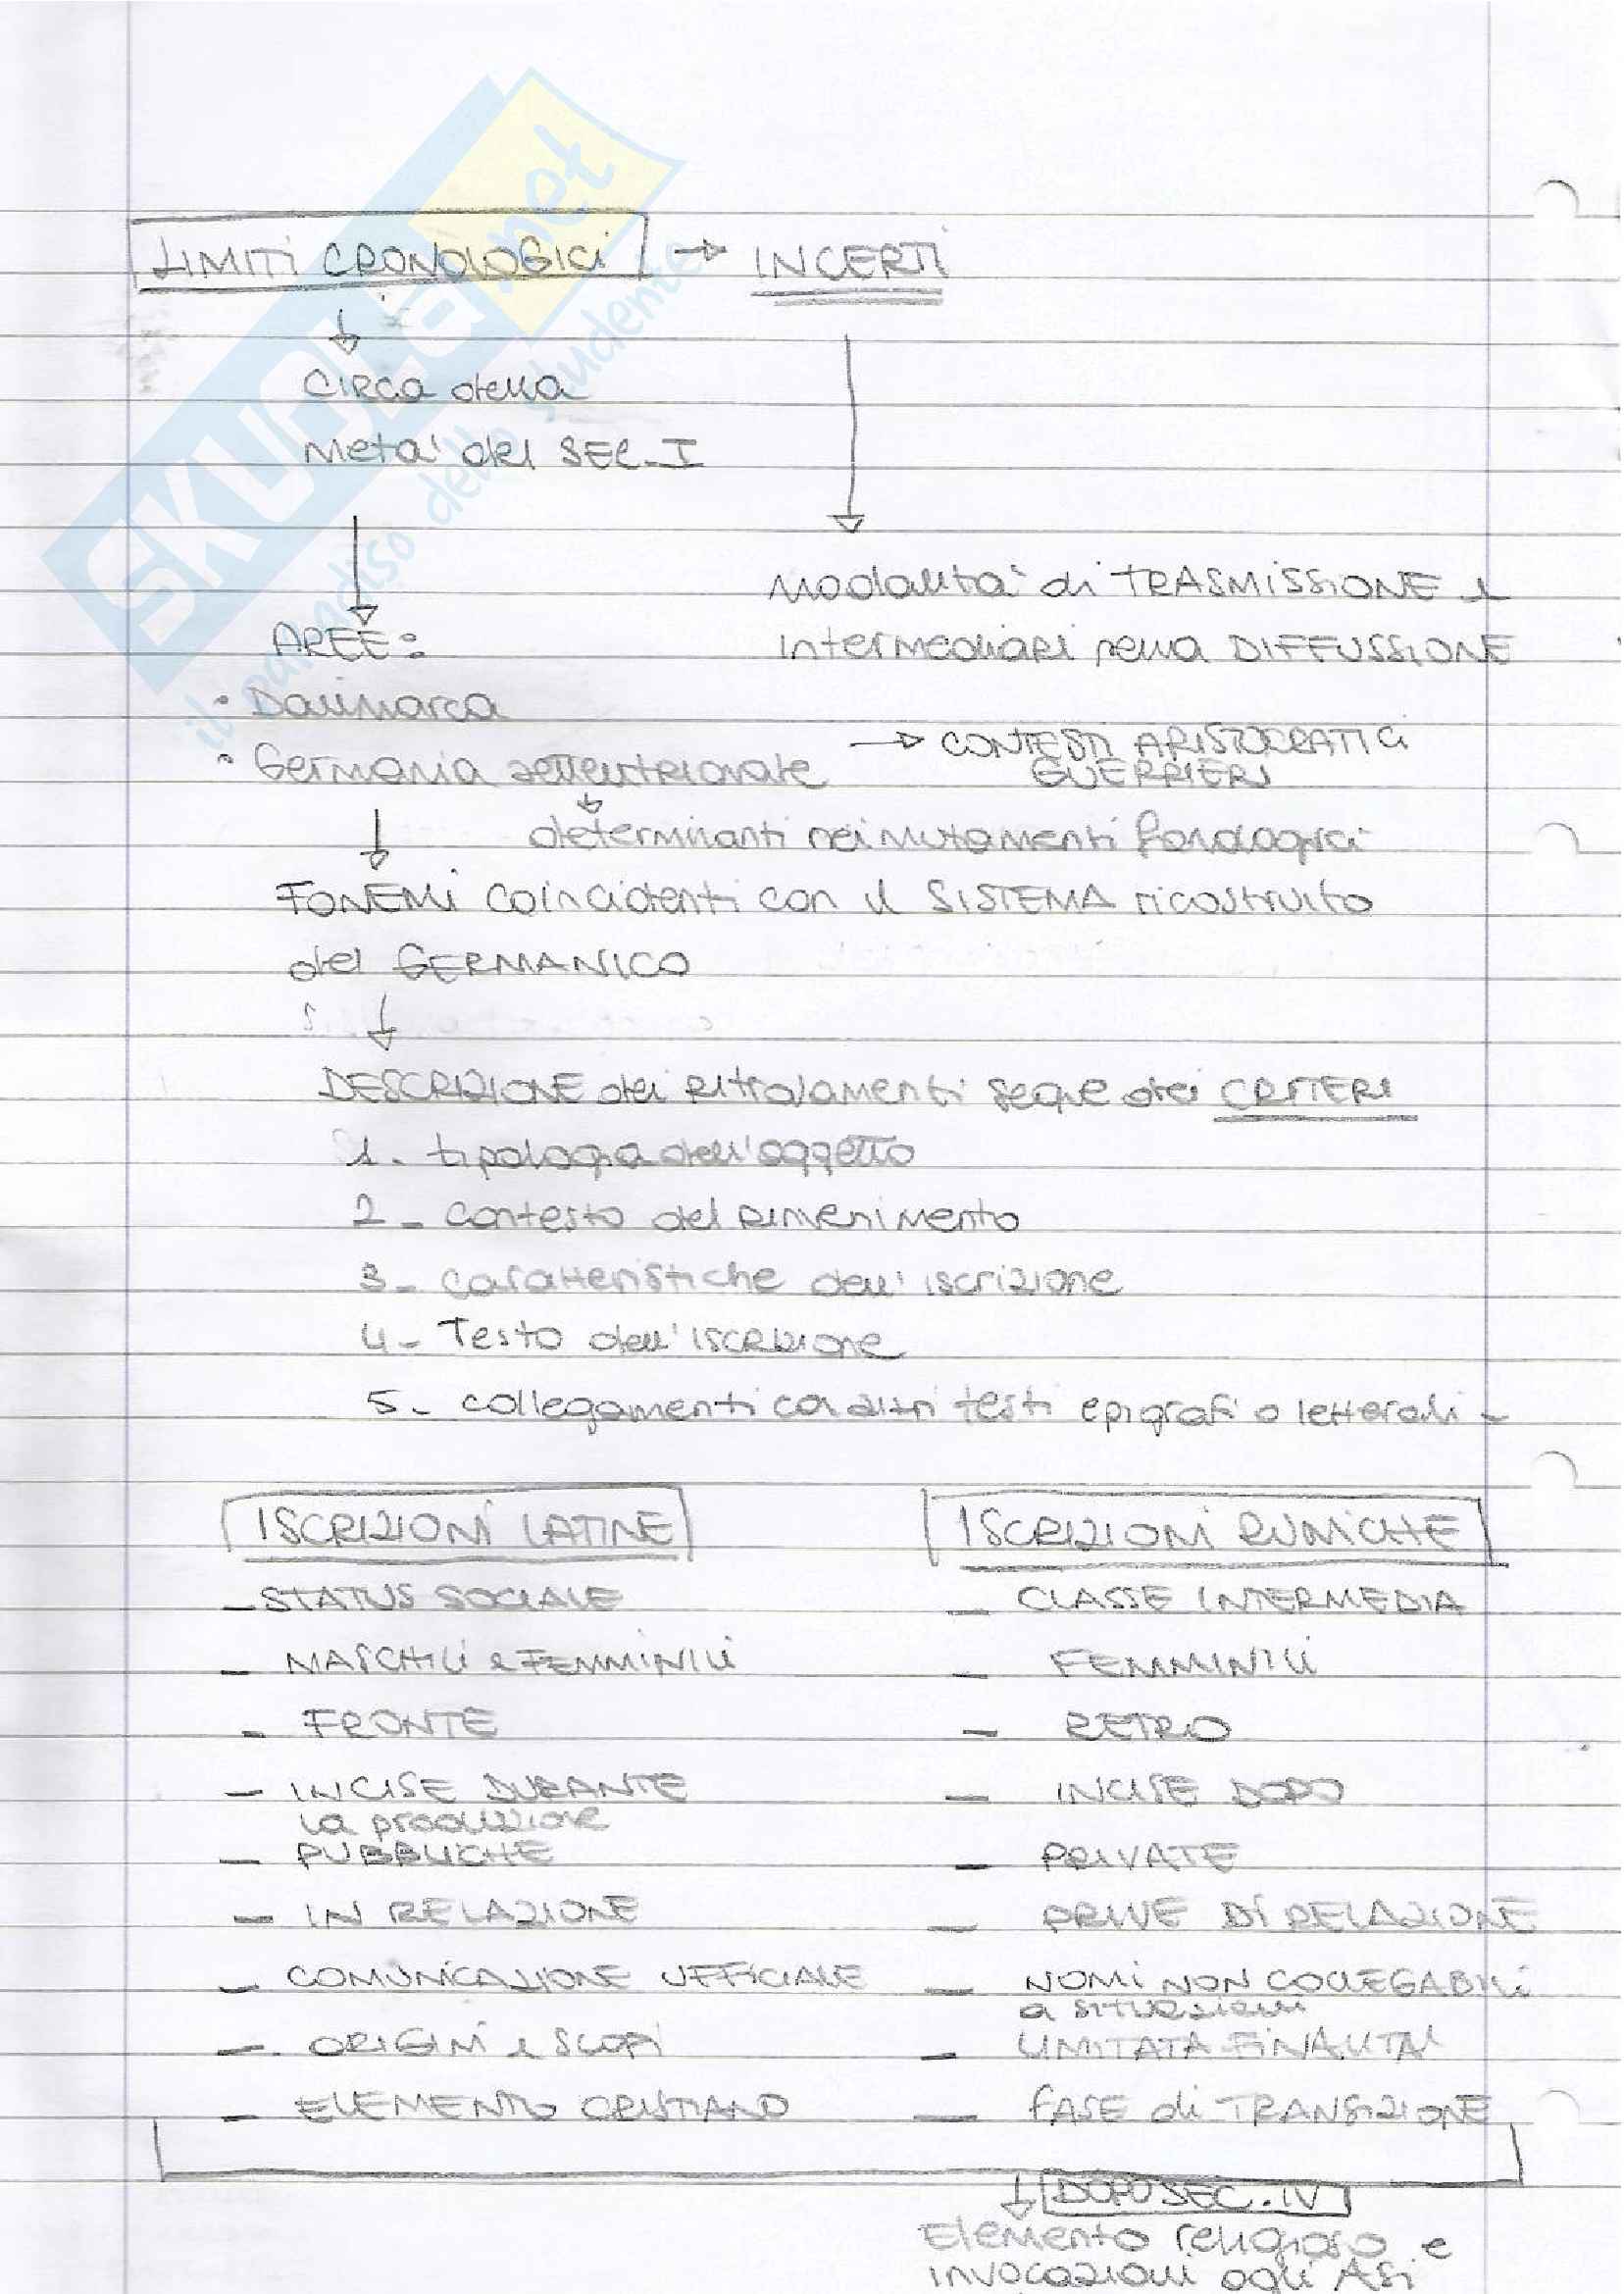 LIMITI CRONOLOGICI → INCERTI
Circa della
Metà del SEC. I
Modalità di TRASMISSIONE e
Intermediari nella DIFFUSSIONE
AREE:
• Danimarca
• Germania settentrionale → CONTESTI ARISTOCRATICI
GUERRIERI
determinanti nei mutamenti fonologici
FONEMI coincidenti con il SISTEMA ricostruito
del GERMANICO
DESCRIZIONE dei Ritrovamenti segue dei CRITERI
1. tipologia dell'oggetto
2 - contesto del rinvenimento
3 - caratteristiche dell'iscrizione
4 - Testo dell'iscrizione
5 - collegamenti con altri testi epigrafi o letterali -
ISCRIZIONI LATINE
- STATUS SOCIALE
- MASCHILI e FEMMINILI
- FRONTE
- INCISE DURANTE
la produzione
- PUBBLICHE
- IN RELAZIONE
- COMUNICAZIONE UFFICIALE
- ORIGINI e SCOPI
- ELEMENTO CRISTIANO
ISCRIZIONI RUNICHE
- CLASSE INTERMEDIA
- FEMMINILI
- RETRO
- INCISE DOPO
- PRIVATE
- PRIVE DI RELAZIONE
- NOMI NON COLLEGABILI
a situazioni
- LIMITATA FINALITA'
- FASE di TRANSIZIONE
DOPO SEC. IV
Elemento religioso e
invocazioni agli Asi
SKUOLA.net
il paradiso dello studente